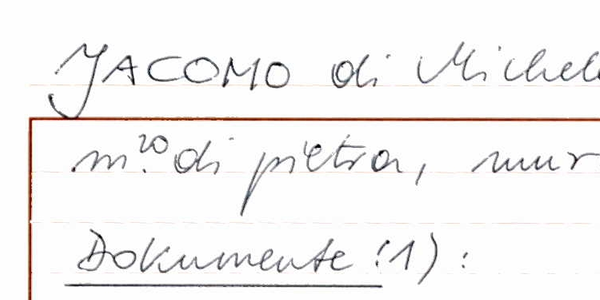 JACOMO di Michel
m.ro di pietra, mur
Dokumente (1):